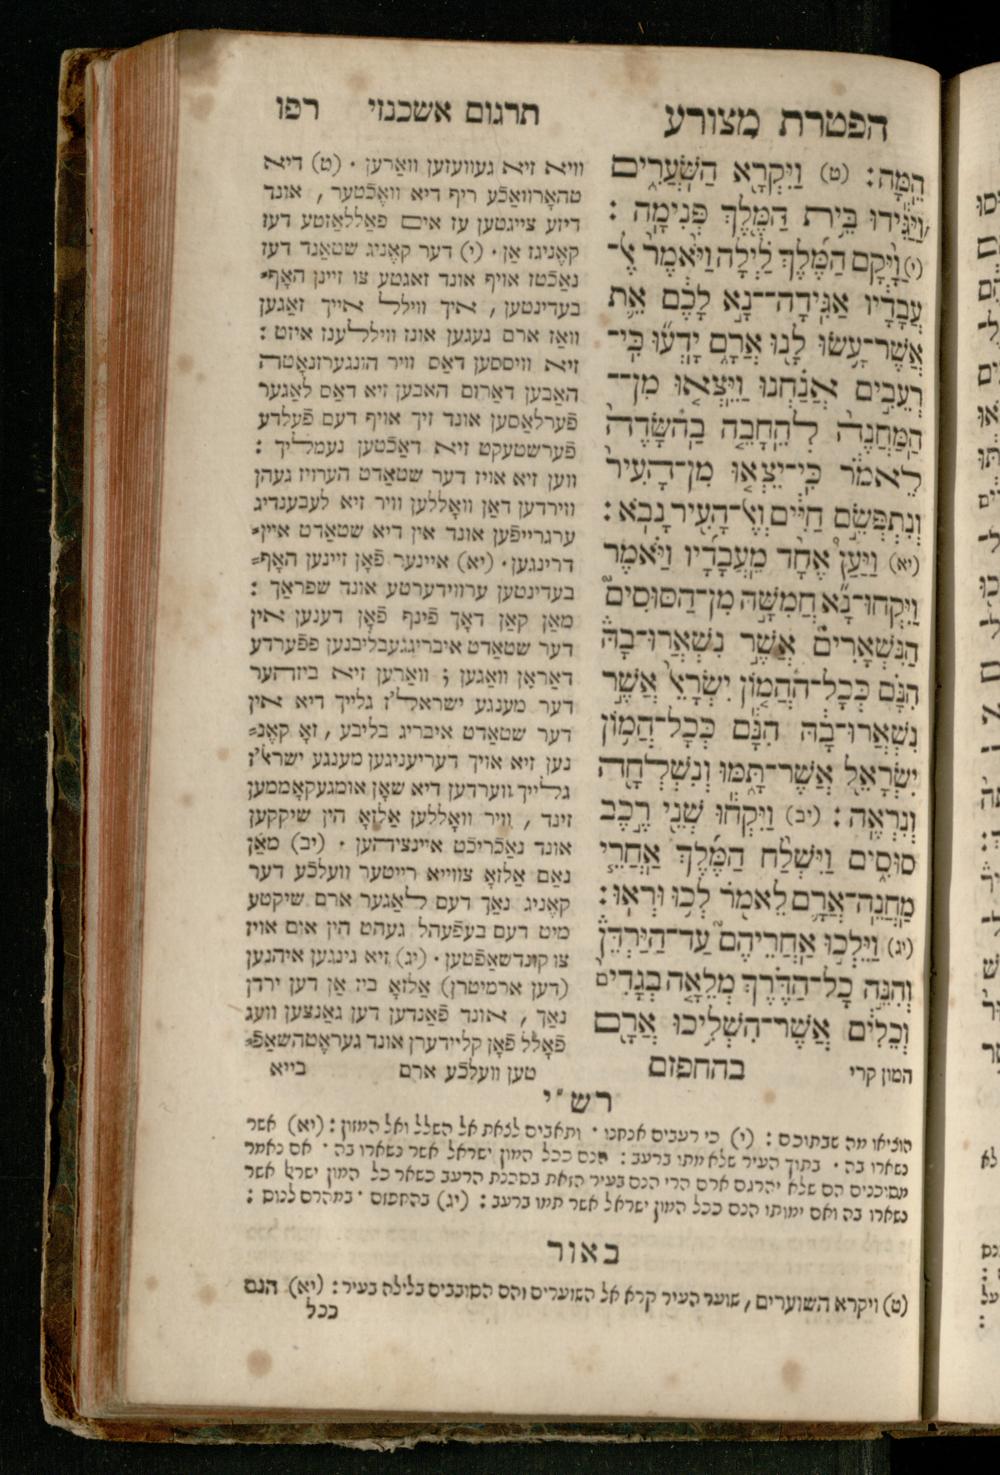 הפטרת מצורע
תרגום אשכנזי
רפו
הֵמָּה: (ט) וַיִּקְרָא הַשֹּׁעֲרִים
וַיַּגִּידוּ בֵּית הַמֶּלֶךְ פְּנִימָה:
(י) וַיָּקָם הַמֶּלֶךְ לַיְלָה וַיֹּאמֶר אֶל־
עֲבָדָיו אַגִּידָה־־נָּא לָכֶם אֵת
אֲשֶׁר־עָשׂוּ לָנוּ אֲרָם יָדְעוּ כִּי־
רְעֵבִים אֲנַחְנוּ וַיֵּצְאוּ מִן־־
הַמַּחֲנֶה לְהֵחָבֵה בַהשָּׂדֶה
לֵאמֹר כִּי־יֵצְאוּ מִן־הָעִיר
וְנִתְפְּשֵׂם חַיִּים וְאֶל־הָעִיר נָבֹא:
(יא) וַיַּעַן אֶחָד מֵעֲבָדָיו וַיֹּאמֶר
וְיִקְחוּ־נָא חֲמִשָּׁה מִן־הַסּוּסִים
הַנִּשְׁאָרִים אֲשֶׁר נִשְׁאֲרוּ־בָהּ
הִנָּם כְּכָל־הֹהֲמוֹן יִשְׂרָאֵל אֲשֶׁר
נִשְׁאֲרוּ־בָהּ הִנָּם כְּכָל־הֲמוֹן
יִשְׂרָאֵל אֲשֶׁר־תָּמּוּ וְנִשְׁלְחָה
וְנִרְאֶה: (יב) וַיִּקְחוּ שְׁנֵי רֶכֶב
סוּסִים וַיִּשְׁלַח הַמֶּלֶךְ אַחֲרֵי
מַחֲנֵה־אֲרָם לֵאמֹר לְכוּ וּרְאוּ:
(יג) וַיֵּלְכוּ אַחֲרֵיהֶם עַד־הַיַּרְדֵּן
וְהִנֵּה כָל־הַדֶּרֶךְ מְלֵאָה בְגָדִים
וְכֵלִים אֲשֶׁר־הִשְׁלִיכוּ אֲרָם
המון קרי
בהחפזם
וויא זיא געוועזען ווארען. (ט) דיא
טהאָרוואַכֿע ריף דיא וואֶכֿטער, אונד
דיזע צייגטען עז אים פאַללאַזטע דעז
קאֶניגז אַן. (י) דער קאֶניג שטאַנד דעז
נאַכֿטז אויף אונד זאגטע צו זיינן האָף=
בעדינטען, איך וויללל אייך זאַגען
וואַז ארם געגען אונז וויללענז איזט:
זיא וויססען דאַס וויר הונגערזנאָטה
האַבען דאַרום האבען זיא דאַס לאַגער
פֿערלאַסען אונד זיך אויף דעם פֿעלדע
פֿערשטעקט זיא דאַכֿטען נעמליך:
ווען זיא אויז דער שטאַדט הערויז געהן
ווירדען דאַן וואָללען וויר זיא לעבענדיג
ערגרייפֿען אונד אין דיא שטאַדט איין=
דרינגען. (יא) איינער פֿאָן זיינען האָף=
בעדינטען ערווידערטע אונד שפראַך:
מאַן קאַן דאָך פֿינף פֿאָן דענען אין
דער שטאַדט איבריגגעבליבנען פפֿערדע
דאַראַן וואַגען; וואַרען זיא ביזהער
דער מענגע ישראל'ז גלייך דיא אין
דער שטאַדט איבריג בליבע, זאָ קאֶנ=
נען זיא אויך דעריעניגען מענגע ישרא'ז
גלייך ווערדען דיא שאָן אומגעקאָממען
זינד, וויר וואָללען אַלזאָ הין שיקקען
אונד נאַכֿריכֿט איינציההען. (יב) מאַן
נאַם אַלזאָ צווייא רייטער וועלכֿע דער
קאֶניג נאַך דעם לאַגער ארם שיקטע
מיט דעם בעפֿעהל געהט הין אום אויז
צו קונדשאַפֿטען. (יג) זיא גינגען איהנען
(דען ארמיטרן) אַלזאָ ביז אַן דען ירדן
נאַך, אונד פֿאַנדען דען גאַנצען וועג
פֿאָלל פֿאָן קליידערן אונד געראֶטהשאַפֿ=
טען וועלכֿע ארם
בייא
רש"י
הוציאו מה שבתוכם: (י) כי רעבים אנחנו. ותאבים לצאת אל השלל ואל המזון: (יא) אשר
נשארו בה. בתוך העיר שלא מתו ברעב: הנם ככל המון ישראל אשר נשארו בה. אם נאמר
מסוכנים הם שלא יהרגם ארם הרי הנם בעיר הזאת בסכנת הרעב כשאר כל המון ישראל אשר
נשארו בה ואם ימותו הנם ככל המון ישראל אשר תמו ברעב: (יג) בהחפזם. במהרם לנוס:
באור
(ט) ויקרא השוערים, שוער העיר קרא אל השוערים והם הסובבים בלילה בעיר: (יא) הנם
ככל